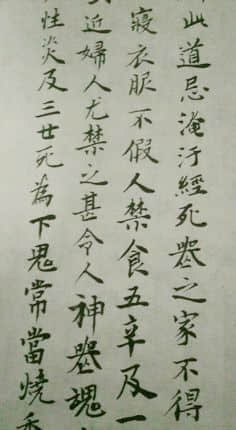 此道忌淹汙經死喪之家不得
寢衣服不假人禁食五辛及一
近婦人尤禁之甚令人神喪魂
性災及三世死為下鬼常當燒香